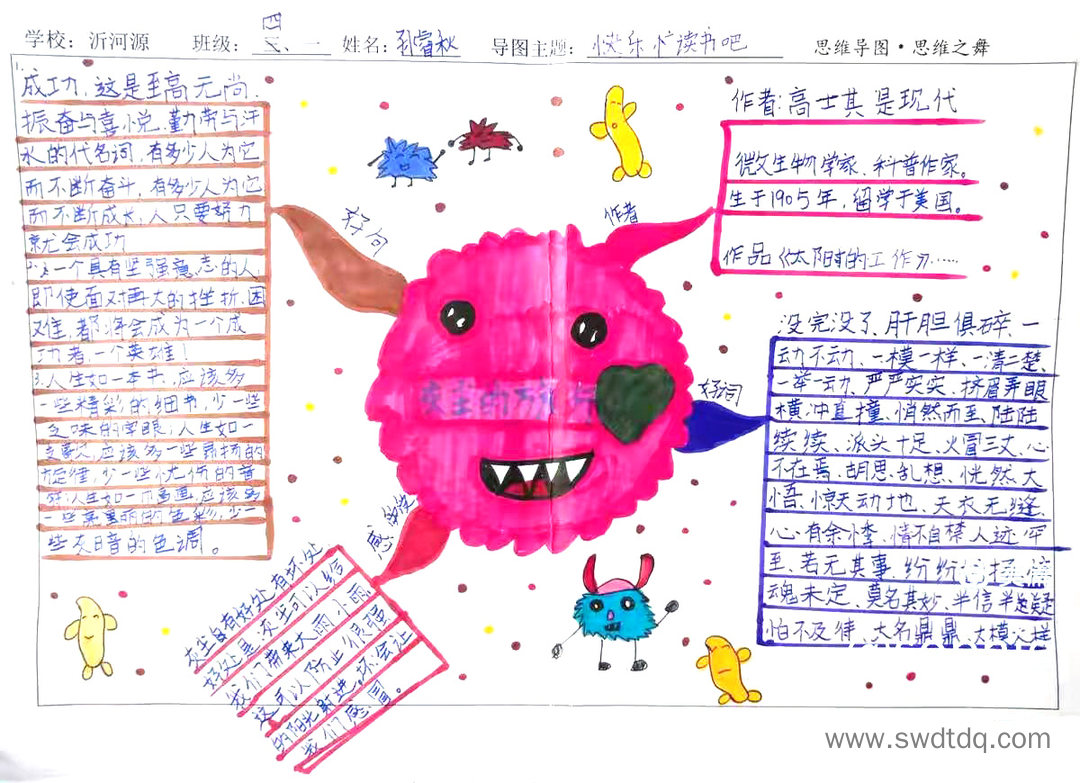 学校：沂河源 班级：四、一 姓名：孙睿秋 导图主题：快乐忙读书吧 思维导图·思维之舞
成功，这是至高无尚，
振奋与喜悦，勤劳与汗
水的代名词，有多少人为它
而不断奋斗，有多少人为它
而不断成长，人只要努力
就会成功
2、一个具有坚强意志的人，
即使面对再大的挫折、困
难，都将会成为一个成
功者，一个英雄！
3.人生如一本书，应该多
一些精彩的细节，少一些
乏味的字眼；人生如一
应该多一些昂扬的
旋律，少一些忧伤的音
人生如一幅画，应该多
一些亮丽的色彩，少一
些灰暗的色调。
好句
作者
作者：高士其是现代
微生物学家、科普作家。
生于1905年，留学于美国。
作品《太阳的工作》……
灰尘的旅行
好词
没完没了、肝胆俱碎、一
动不动、一模一样、一清二楚、
一举一动、严严实实、挤眉弄眼
横冲直撞、悄然而至、陆陆
续续、派头十足、火冒三丈、心
不在焉、胡思乱想、恍然大
悟、惊天动地、天衣无缝、
心有余悸、情不自禁、人迹罕
至、若无其事、纷纷
魂未定、莫名其妙、半信半疑
怕不及待、大名鼎鼎、大模大样
感
灰尘有好处有坏处
好处是：灰尘可以给
我们带来大雨小雨
这可以防止很强
的阳光射进，坏会让
我们感冒。
www.swdtdq.com